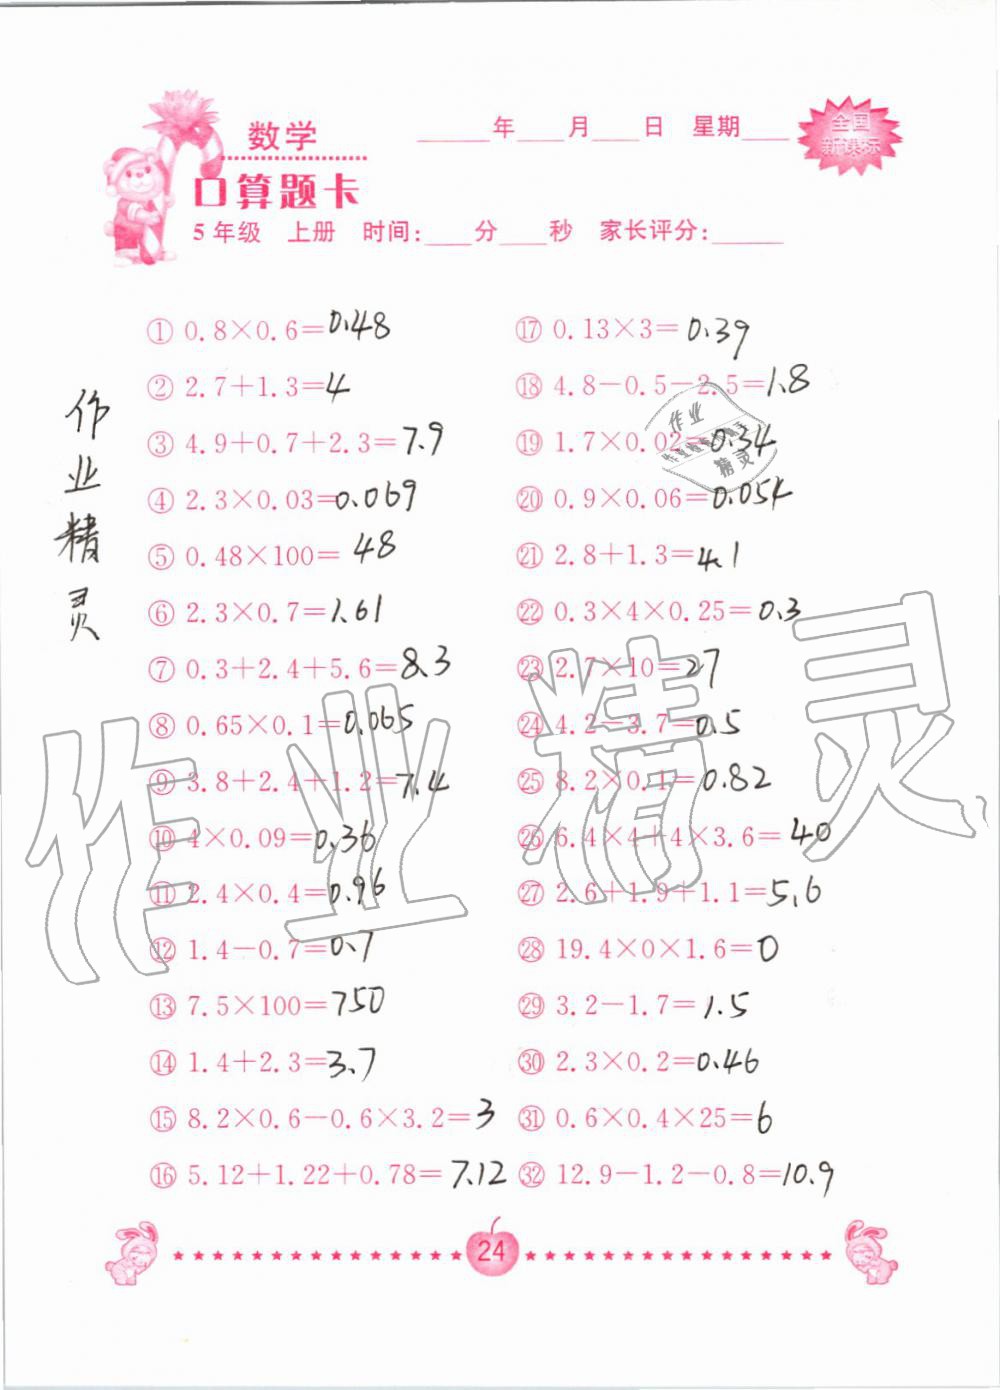 数学
____年____月____日 星期____
全国
新课标
口算题卡
5年级 上册 时间:____分____秒 家长评分:____
作业精灵
① 0.8×0.6=0.48
② 2.7+1.3=4
③ 4.9+0.7+2.3=7.9
④ 2.3×0.03=0.069
⑤ 0.48×100=48
⑥ 2.3×0.7=1.61
⑦ 0.3+2.4+5.6=8.3
⑧ 0.65×0.1=0.065
⑨ 3.8+2.4+1.2=7.4
⑩ 4×0.09=0.36
⑪ 2.4×0.4=0.96
⑫ 1.4-0.7=0.7
⑬ 7.5×100=750
⑭ 1.4+2.3=3.7
⑮ 8.2×0.6-0.6×3.2=3
⑯ 5.12+1.22+0.78=7.12
⑰ 0.13×3=0.39
⑱ 4.8-0.5-2.5=1.8
⑲ 1.7×0.02=0.34
⑳ 0.9×0.06=0.054
㉑ 2.8+1.3=4.1
㉒ 0.3×4×0.25=0.3
㉓ 2.7×10=27
㉔ 4.2-3.7=0.5
㉕ 8.2×0.1=0.82
㉖ 6.4×4+4×3.6=40
㉗ 2.6+1.9+1.1=5.6
㉘ 19.4×0×1.6=0
㉙ 3.2-1.7=1.5
㉚ 2.3×0.2=0.46
㉛ 0.6×0.4×25=6
㉜ 12.9-1.2-0.8=10.9
作业
精灵
作业精灵
24